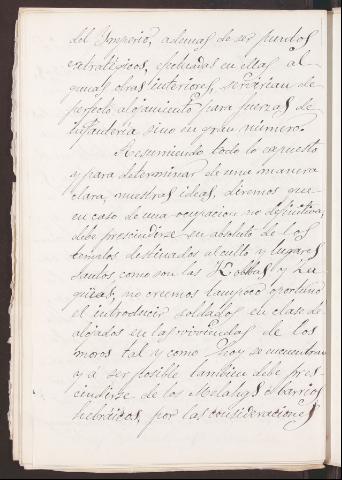 del Imperio, ademas de ser puntos
extratégicos, efectuadas en ellas al-
gunas obras interiores, servirian de
perfecto alojamiento para fuerzas de
infanteria sino en gran número.
Resumiendo todo lo expuesto
y para determinar de una manera
clara, nuestras ideas, diremos que
en caso de una ocupacion no definitiva,
debe prescindirse en absoluto de los
templos destinados al culto y lugares
Santos como son las Kobbas y Za-
güias, no creemos tampoco oportuno
el introducir soldados en clase de
alojados en las viviendas de los
moros tal y como hoy se encuentran
y á ser posible tambien debe pres-
cindirse de los Melahgs ó barrios
hebráicos, por las consideraciones